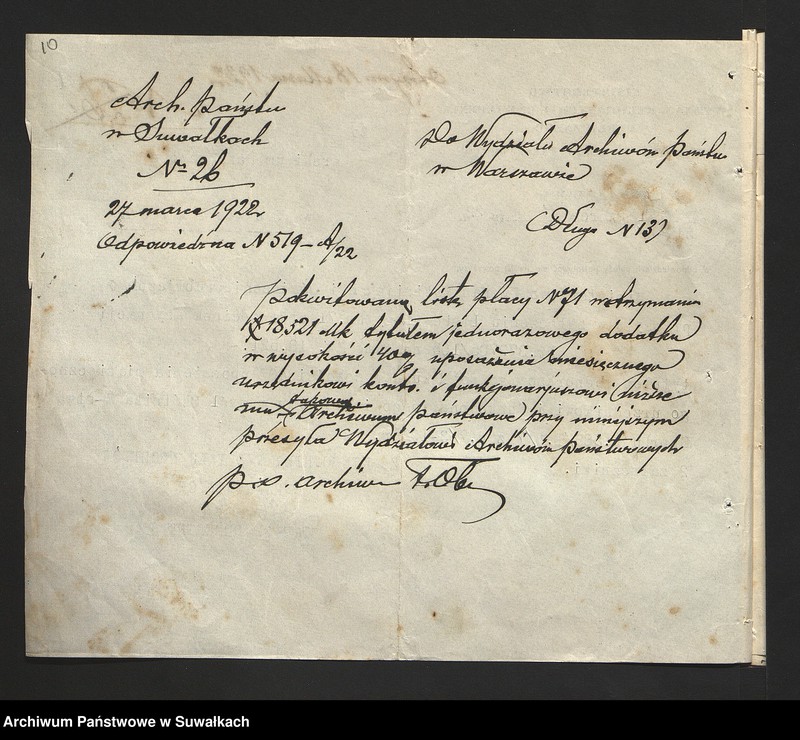 10
Arch. Państw
w Suwałkach
Nr 26
27 marca 1922r
Odpowiedź na N 519 – A/22
Do Wydziału Archiwów Państw
w Warszawie
(Długa N 13)
Pokwitowaną listę płacy N 71 w otrzymaniu
18,521 Mk tytułem jednorazowego dodatku
w wysokości 40% uposażenia miesięcznego
urzędnikowi kontr. i funkcjonarjuszowi niższe
mu Archiwum państwowe przy niniejszym
przesyła Wydziałowi Archiwów państwowych
Archiwum Państwowe w Suwałkach